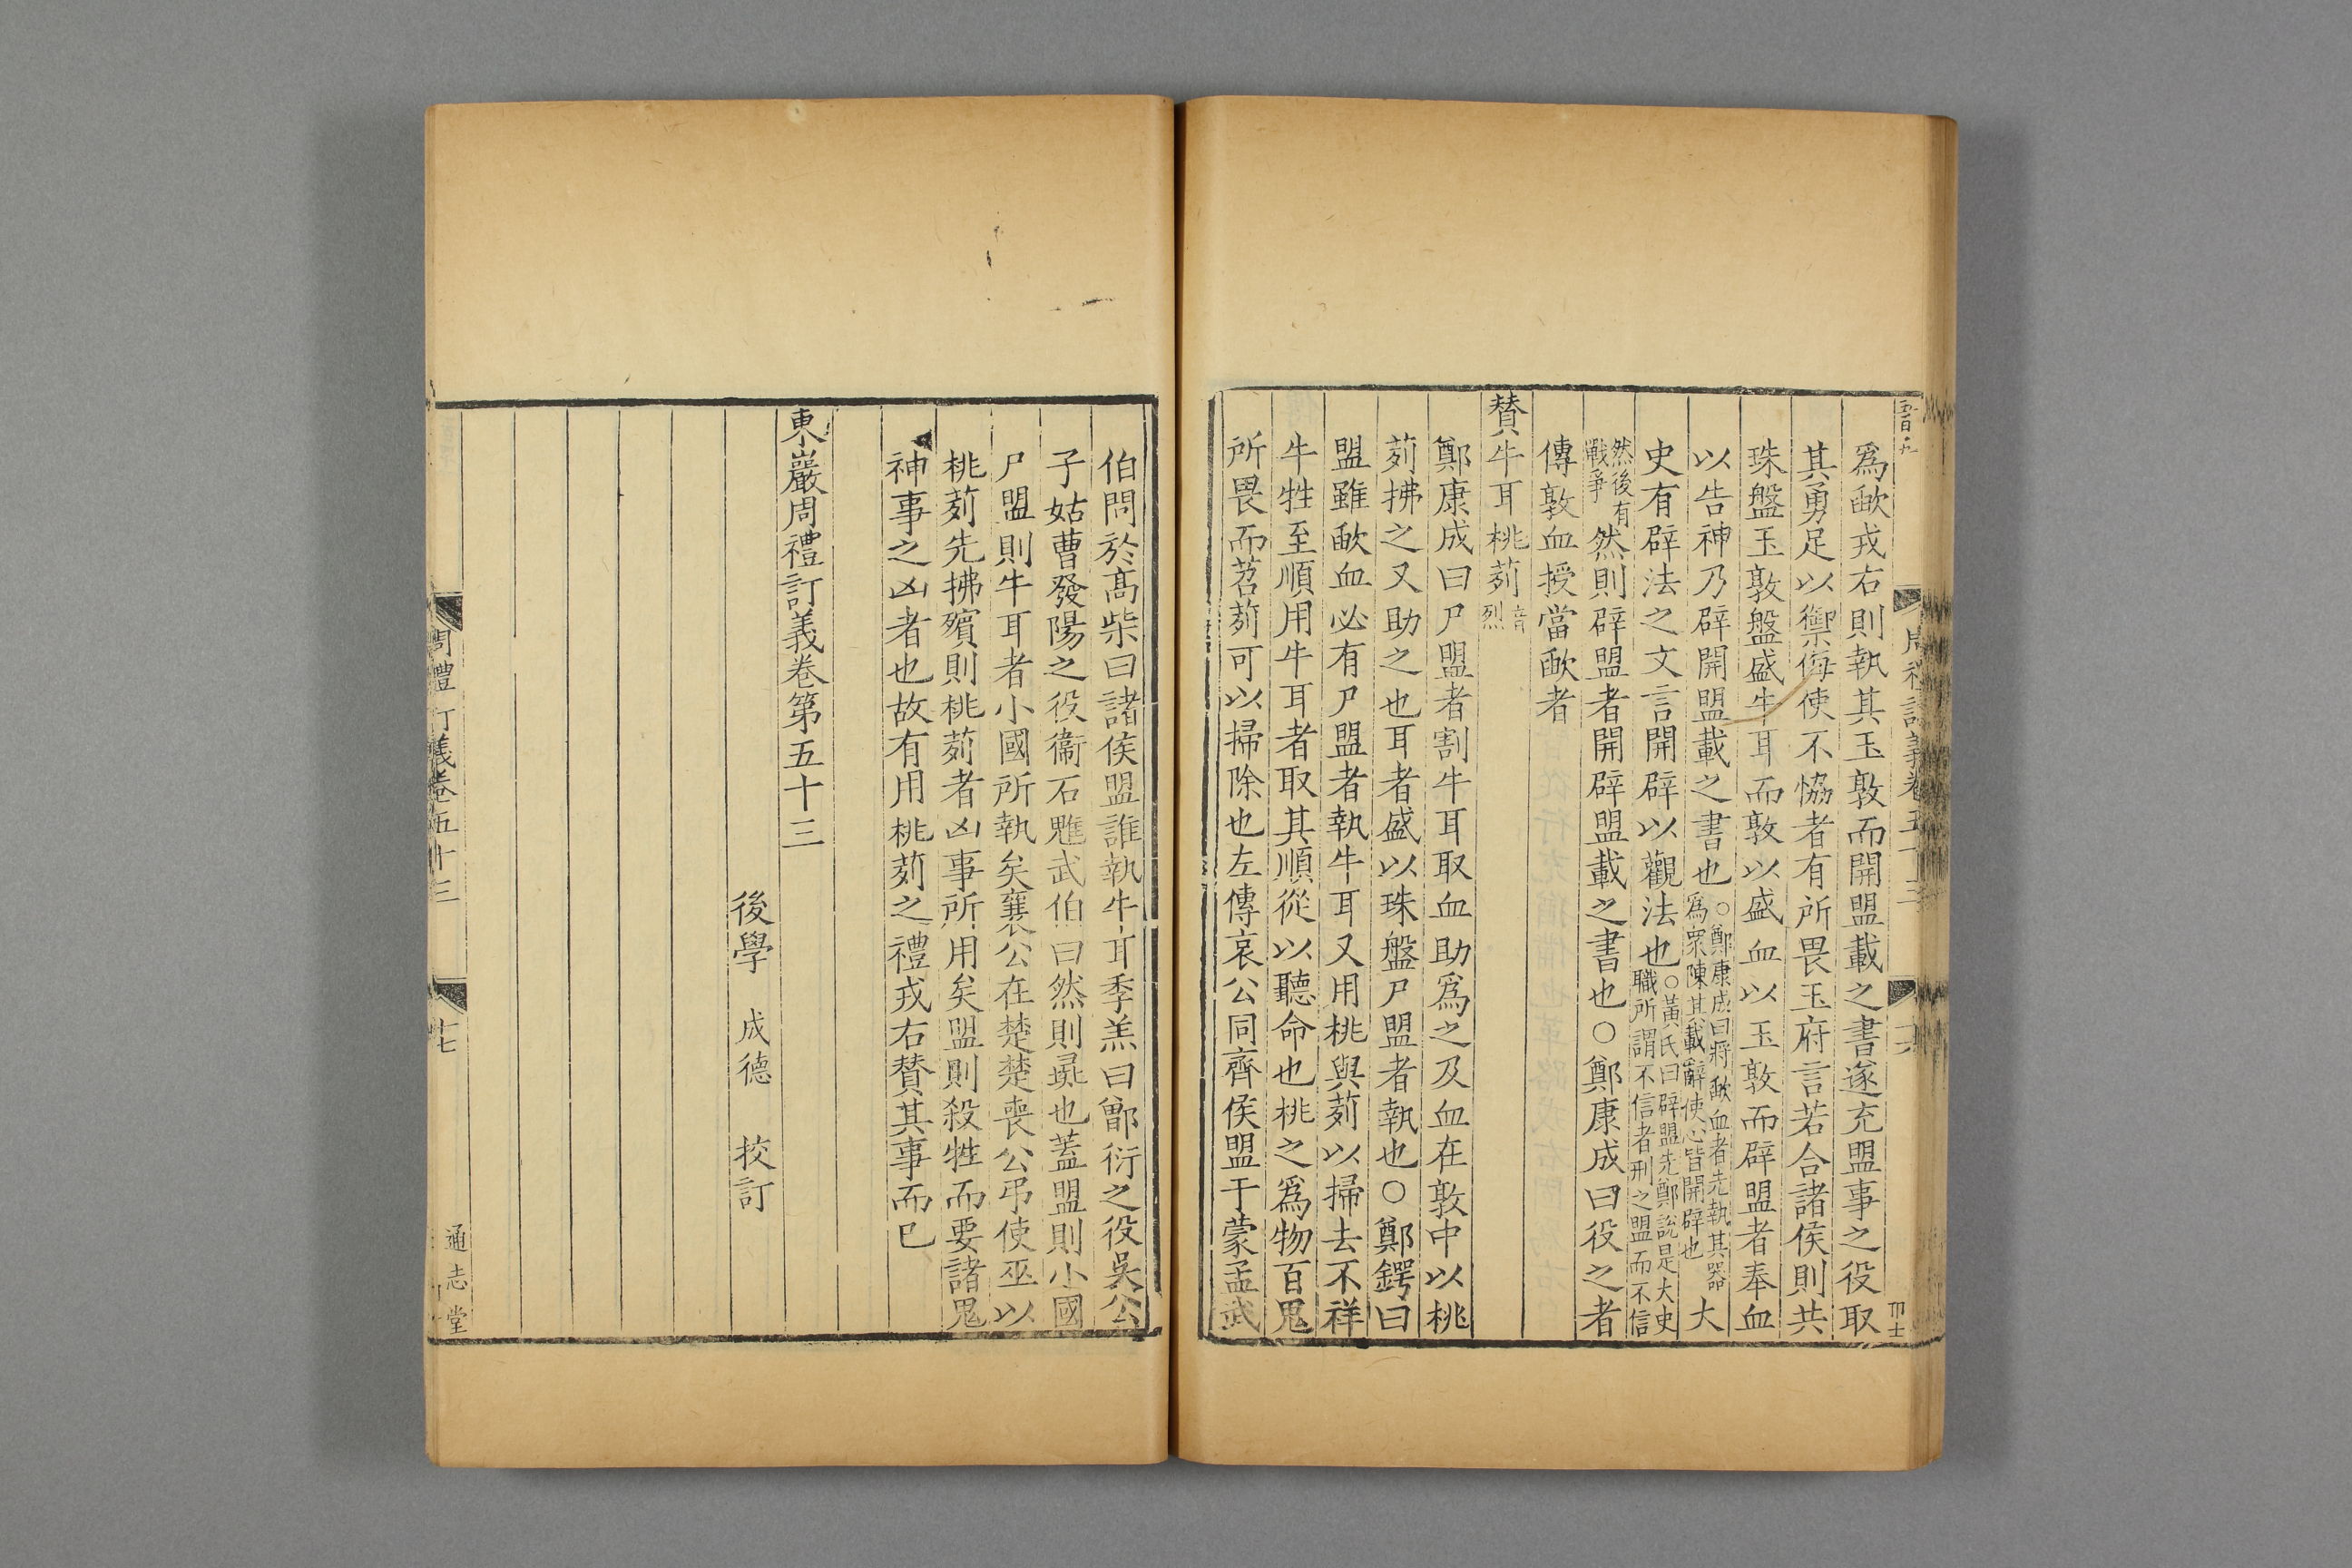 爲歃戎右則執其玉敦而開盟載之書遂充盟事之役取
其勇足以禦侮使不恊者有所畏玉府言若合諸侯則共
珠盤玉敦盤盛牛耳而敦以盛血以玉敦而辟盟者奉血
以告神乃辟開盟載之書也○鄭康成曰將歃血者先執其器爲衆陳其載辭使心皆開辟也大
史有辟法之文言開辟以觀法也○黃氏曰辟盟先鄭說是大史職所謂不信者刑之盟而不信
然後有戰爭然則辟盟者開辟盟載之書也○鄭康成曰役之者
傳敦血授當歃者
贊牛耳桃茢音烈
鄭康成曰尸盟者割牛耳取血助爲之及血在敦中以桃
茢拂之又助之也耳者盛以珠盤尸盟者執也○鄭鍔曰
盟雖歃血必有尸盟者執牛耳又用桃與茢以掃去不祥
牛牲至順用牛耳者取其順從以聽命也桃之爲物百鬼
所畏而苕茢可以掃除也左傳哀公同齊侯盟于蒙孟武
伯問於高柴曰諸侯盟誰執牛耳季羔曰鄫衍之役吳公
子姑曹發陽之役衞石魋武伯曰然則彘也蓋盟則小國
尸盟則牛耳者小國所執矣襄公在楚楚喪公弔使巫以
桃茢先拂殯則桃茢者凶事所用矣盟則殺牲而要諸鬼
神事之凶者也故有用桃茢之禮戎右贊其事而已
東巖周禮訂義卷第五十三
後學 成德 挍訂
周禮訂義卷五十三
十七
通志堂